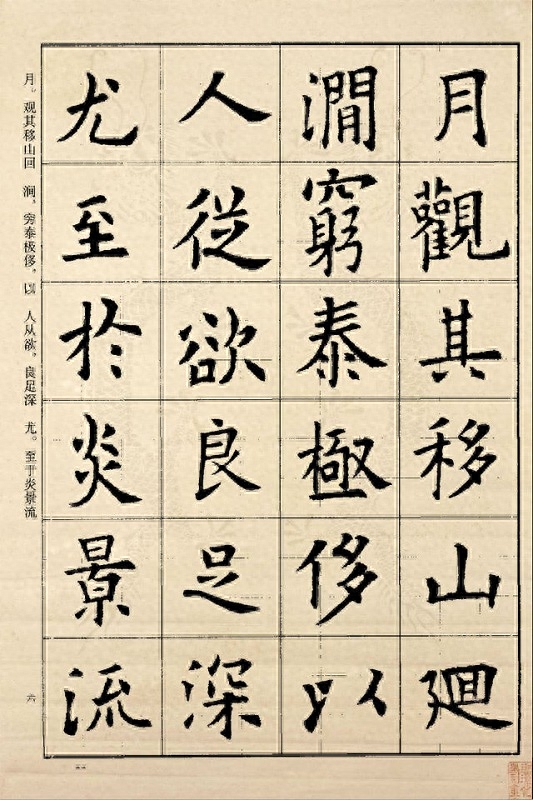 月觀其移山廻
澗窮泰極侈以
人從欲良足深
尤至於炎景流
月。观其移山回 涧，穷泰极侈。以 人从欲。良足深 尤。至于炎景流
六